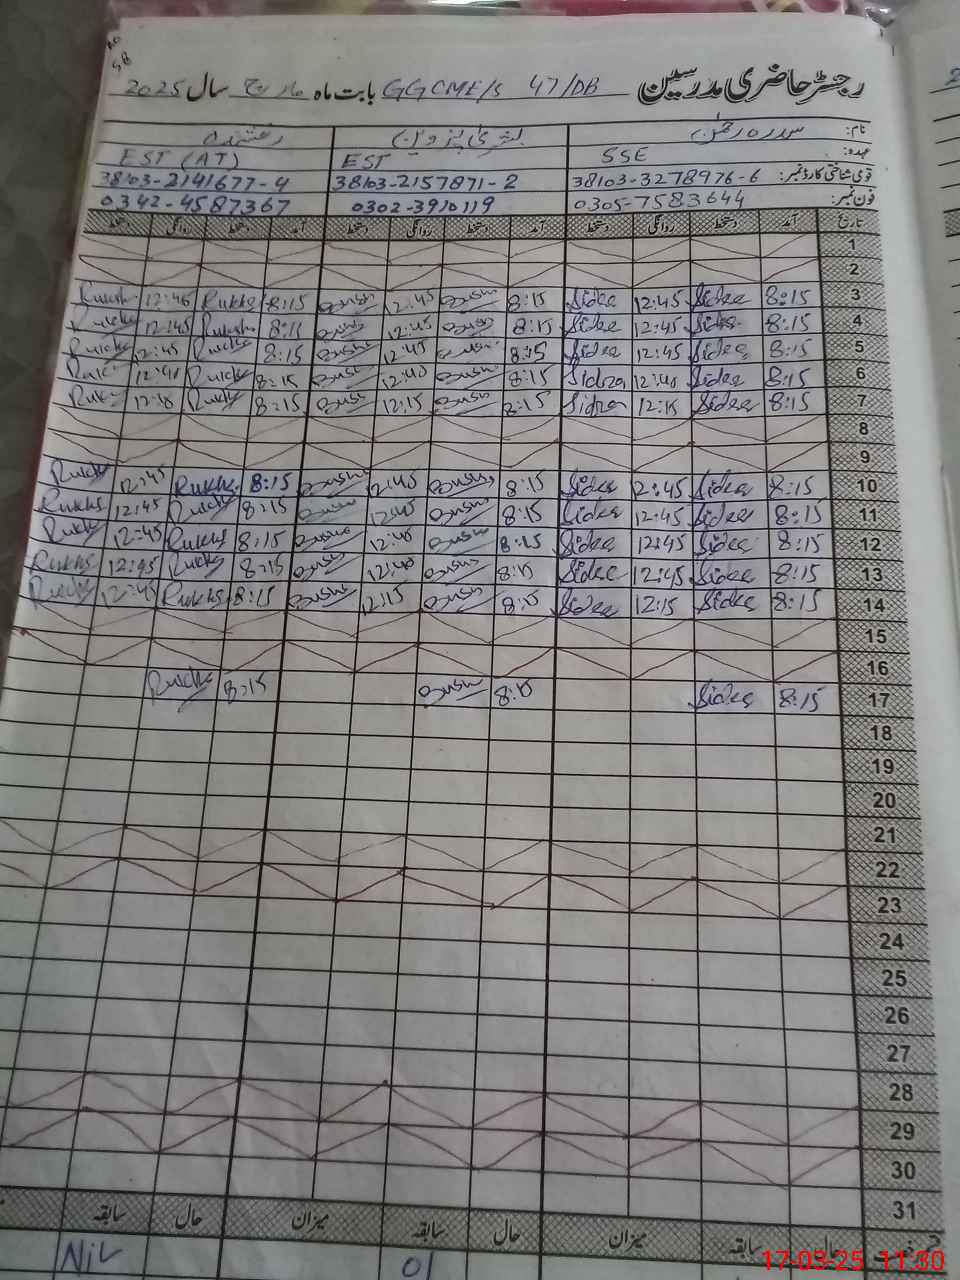 رجسٹر حاضری مدرسین GGCME/S 47/DB بابت ماہ مارچ سال 2025
نام: سدرہ رحمن بشریٰ پروین رخشندہ
عہدہ: SSE EST EST (AT)
قومی شناختی کارڈ نمبر: 38103-3278976-6 38103-2157871-2 38103-2141677-4
فون نمبر: 0305-7583644 0302-3910119 0342-4587367
تاریخ آمد دستخط روانگی دستخط آمد دستخط روانگی دستخط آمد دستخط روانگی دستخط
1
2
3 8:15 Sidra 12:45 Sidra 8:15 Bush 12:45 Bush 8:15 Rukhs 12:45 Rukh
4 8:15 Sidra 12:45 Sidra 8:15 Bush 12:45 Bush 8:15 Rukhs 12:45 Rukhs
5 8:15 Sidra 12:45 Sidra 8:15 Bush 12:45 Bush 8:15 Rukhs 12:45 Rukhs
6 8:15 Sidra 12:40 Sidra 8:15 Bush 12:40 Bush 8:15 Rukhs 12:40
7 8:15 Sidra 12:15 Sidra 8:15 Bush 12:15 Bush 8:15 Rukhs
8
9
10 8:15 Sidra 12:45 Sidra 8:15 Bush 12:45 Bush 8:15 Rukhs 12:45 Rukhs
11 8:15 Sidra 12:45 Sidra 8:15 Bush 12:45 Bush 8:15 Rukhs 12:45 Rukhs
12 8:15 Sidra 12:45 Sidra 8:15 Bush 12:40 Bush 8:15 Rukhs 12:45 Rukhs
13 8:15 Sidra 12:45 Sidra 8:15 Bush 12:40 Bush 8:15 Rukhs 12:45 Rukhs
14 8:15 Sidra 12:15 Sidra 8:15 Bush 12:15 Bush 8:15 Rukhs 12:45 Rukhs
15
16
17 8:15 Sidra 8:15 Bush 8:15 Rukhs
18
19
20
21
22
23
24
25
26
27
28
29
30
31
حال سابقہ میزان حال سابقہ میزان حال سابقہ
01 Nil
17-03-25 11:30